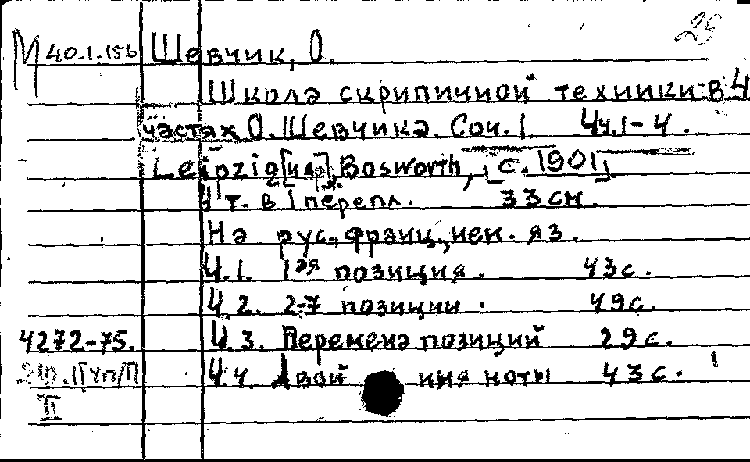 25
М 40.1.156 Шевчик, О.
Школа скрипичной техники в 4
частях О. Шевчика. Соч. 1. Ч ч. 1-4.
Leipzig [и др.], Bosworth, [с. 1901]
4 т. в 1 перепл. 33 см.
На рус., франц., нем. яз.
Ч. 1. 1ая позиция. 43 с.
Ч. 2. 2-7 позиции. 49 с.
4272-75. Ч. 3. Перемена позиций 29 с.
Ч. 4. Двой ные ноты 43 с.
II